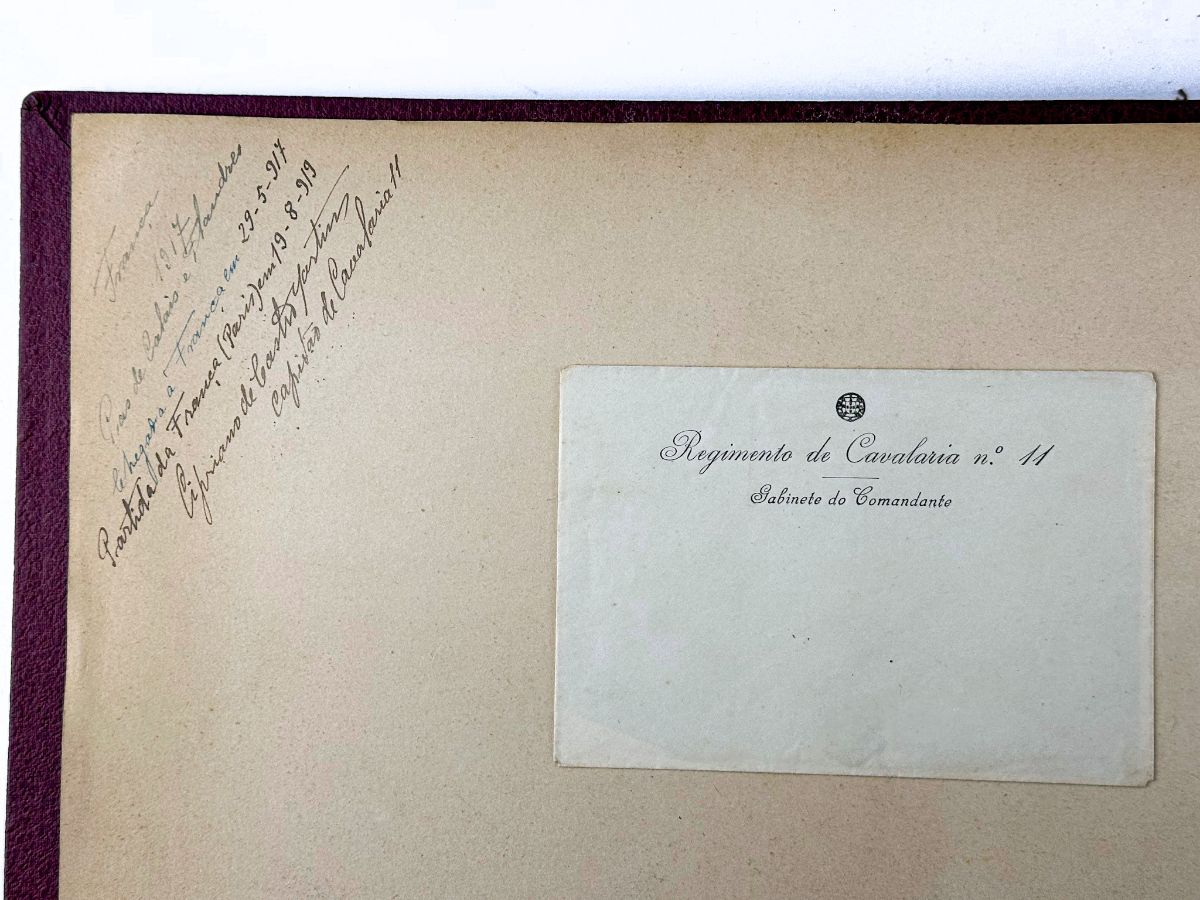 França
1917
Pas de Calais e Flandres
Chegada a França em 29-5-917
Partida da França (Paris) em 19-8-919
Cipriano de Castro Martins
Capitão de Cavalaria 11
Regimento de Cavalaria n.º 11
Gabinete do Comandante